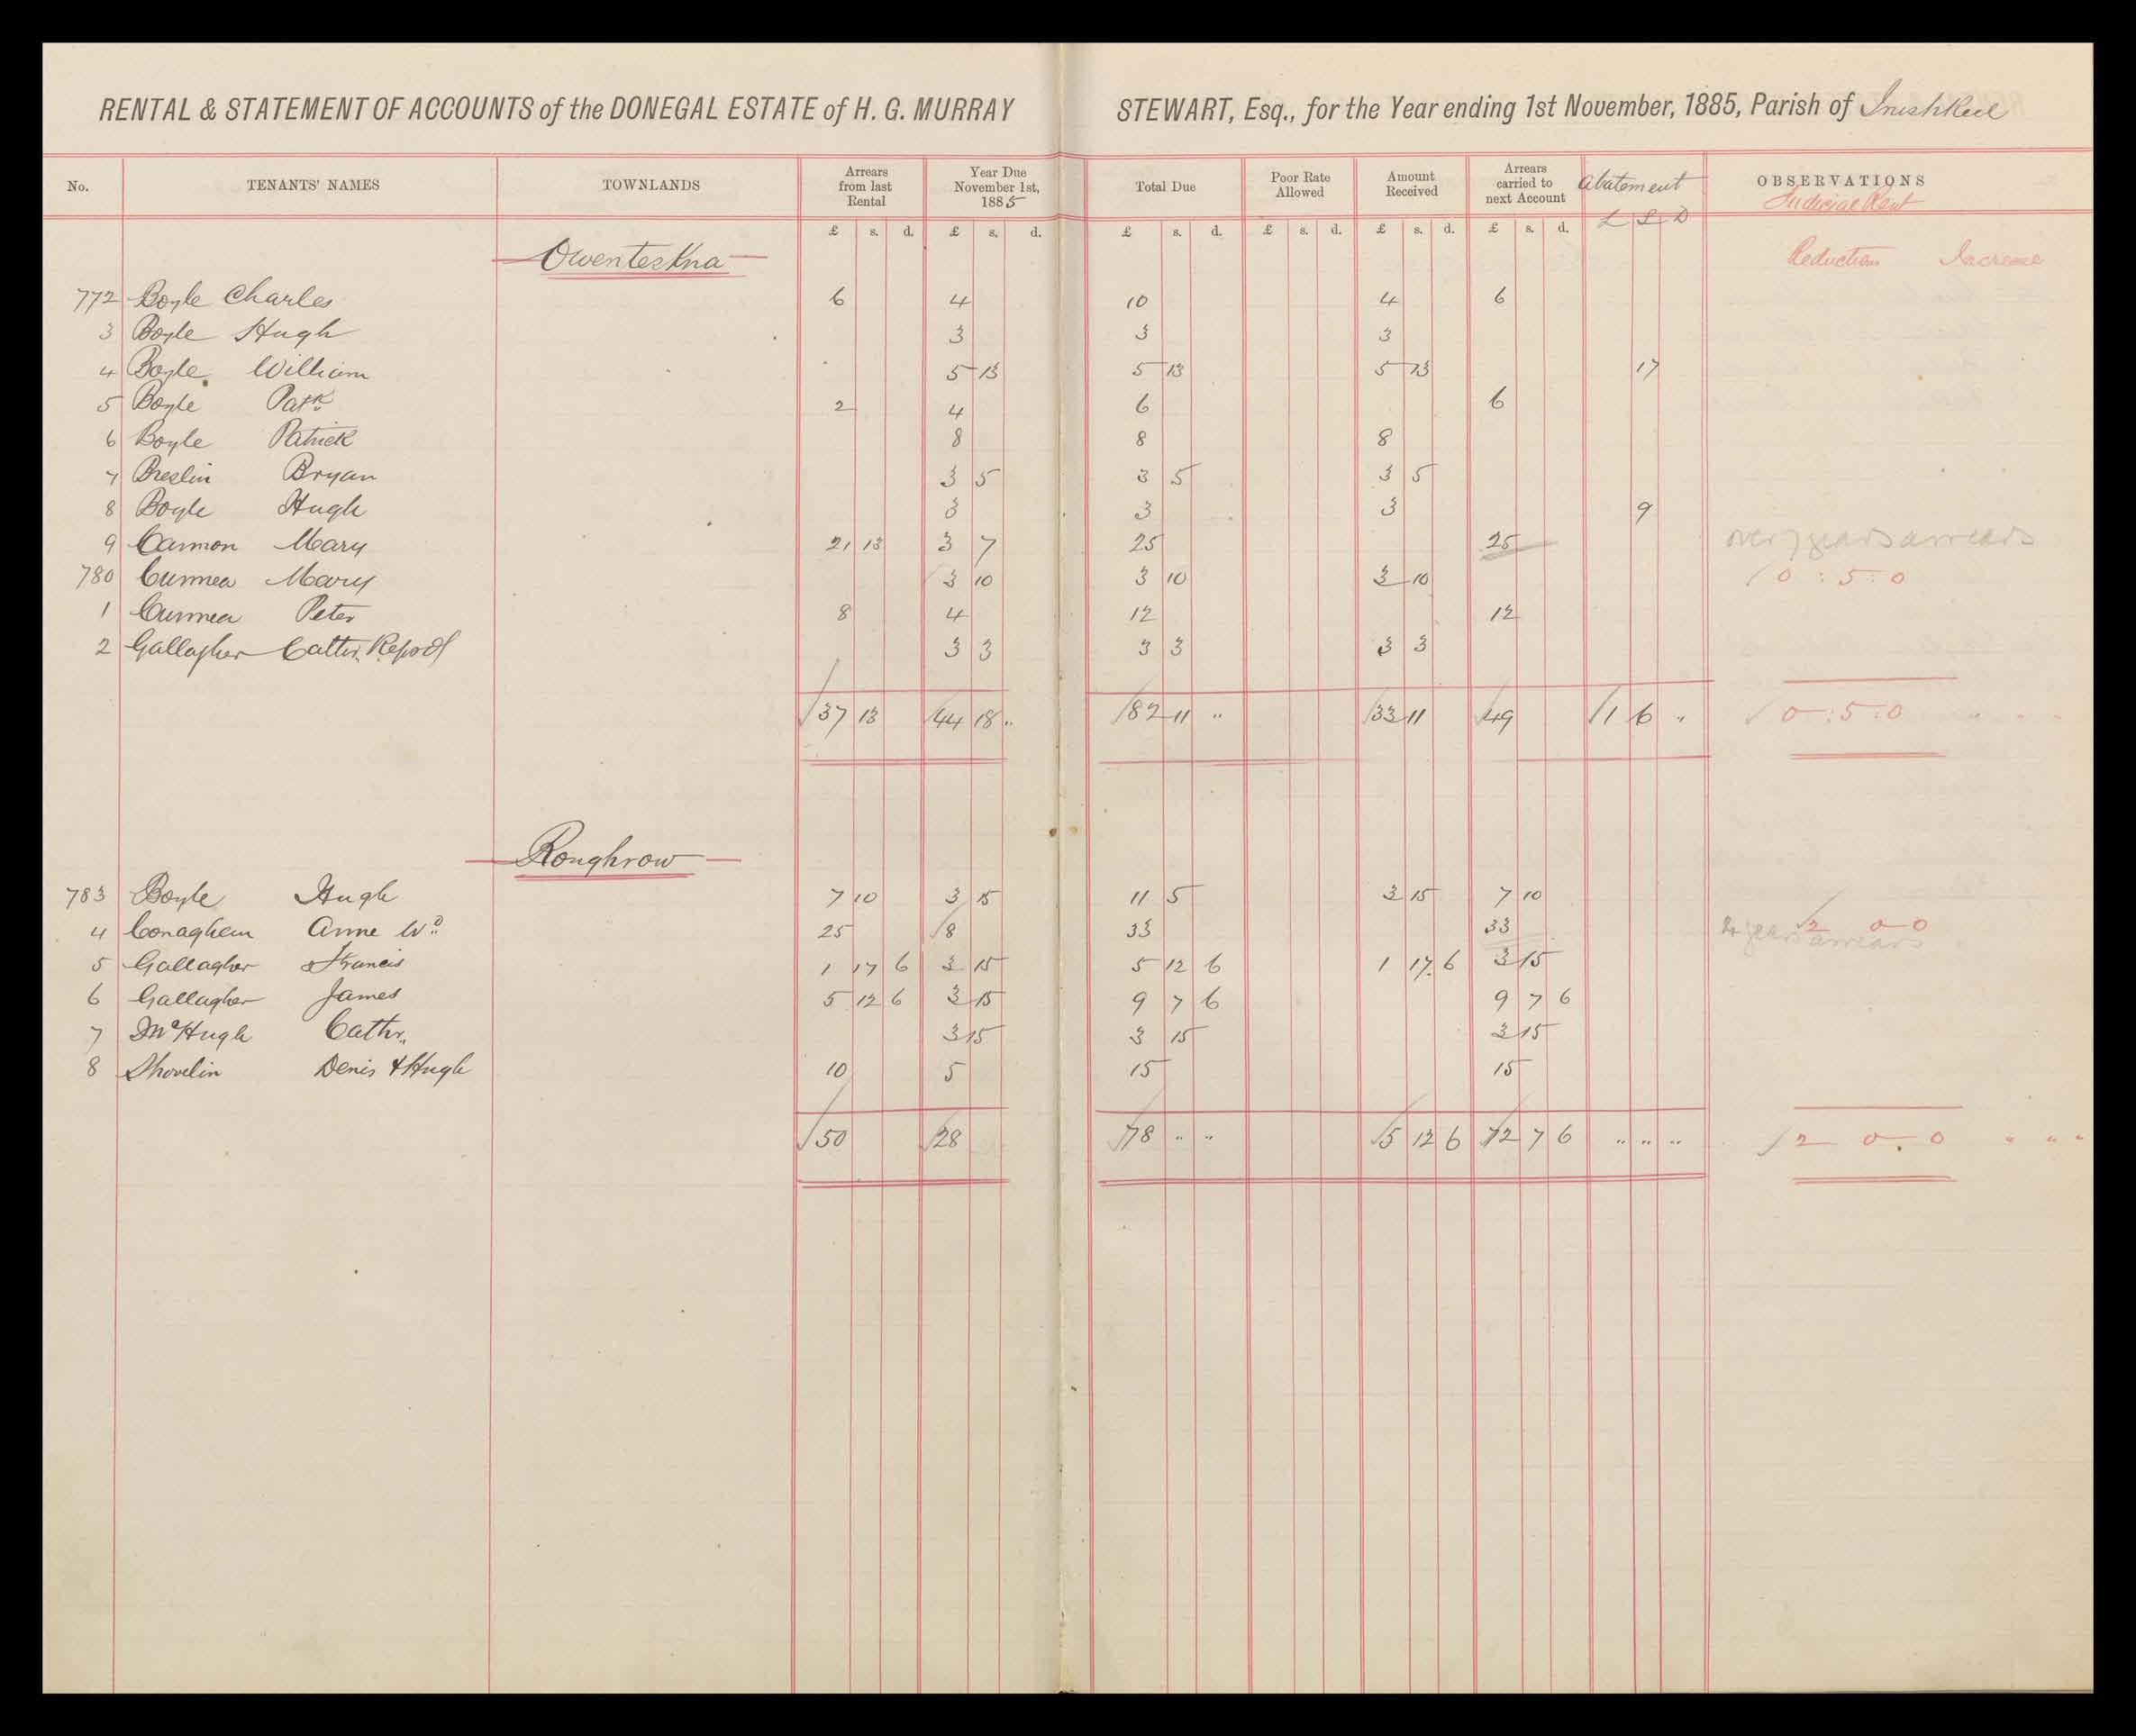 RENTAL & STATEMENT OF ACCOUNTS of the DONEGAL ESTATE of H. G. MURRAY STEWART, Esq., for the Year ending 1st November, 1885, Parish of Inishkeel
No. TENANTS' NAMES TOWNLANDS Arrears from last Rental Year Due November 1st, 1885 Total Due Poor Rate Allowed Amount Received Arrears carried to next Account Abatement OBSERVATIONS
Judicial Rent
£ s. d. £ s. d. £ s. d. £ s. d. £ s. d. £ s. d. £ S D
Owenteskna Reduction Increase
772 Boyle Charles 6 4 10 4 6
3 Boyle Hugh 3 3 3
4 Boyle William 5 13 5 13 5 13 17
5 Boyle Patk 2 4 6 6
6 Boyle Patrick 8 8 8
7 Breslin Bryan 3 5 3 5 3 5
8 Boyle Hugh 3 3 3 9
9 Cannon Mary 21 13 3 7 25 25 over 7 years arrears
780 Cunnea Mary 3 10 3 10 3 10 0 : 5 : 0
1 Cunnea Peter 8 4 12 12
2 Gallagher Cathr. Reps of 3 3 3 3 3 3
37 13 44 18 " 82 11 " 33 11 49 1 6 " 0 : 5 : 0 " " "
Roughrow
783 Boyle Hugh 7 10 3 15 11 5 3 15 7 10
4 Conaghan Anne Wd. 25 8 33 33 2 0 0
4 years arrears
5 Gallagher Francis 1 17 6 3 15 5 12 6 1 17 6 3 15
6 Gallagher James 5 12 6 3 15 9 7 6 9 7 6
7 McHugh Cathr. 3 15 3 15 3 15
8 Shovelin Denis & Hugh 10 5 15 15
50 28 78 " " 5 12 6 72 7 6 " " " 2 0 0 " " "